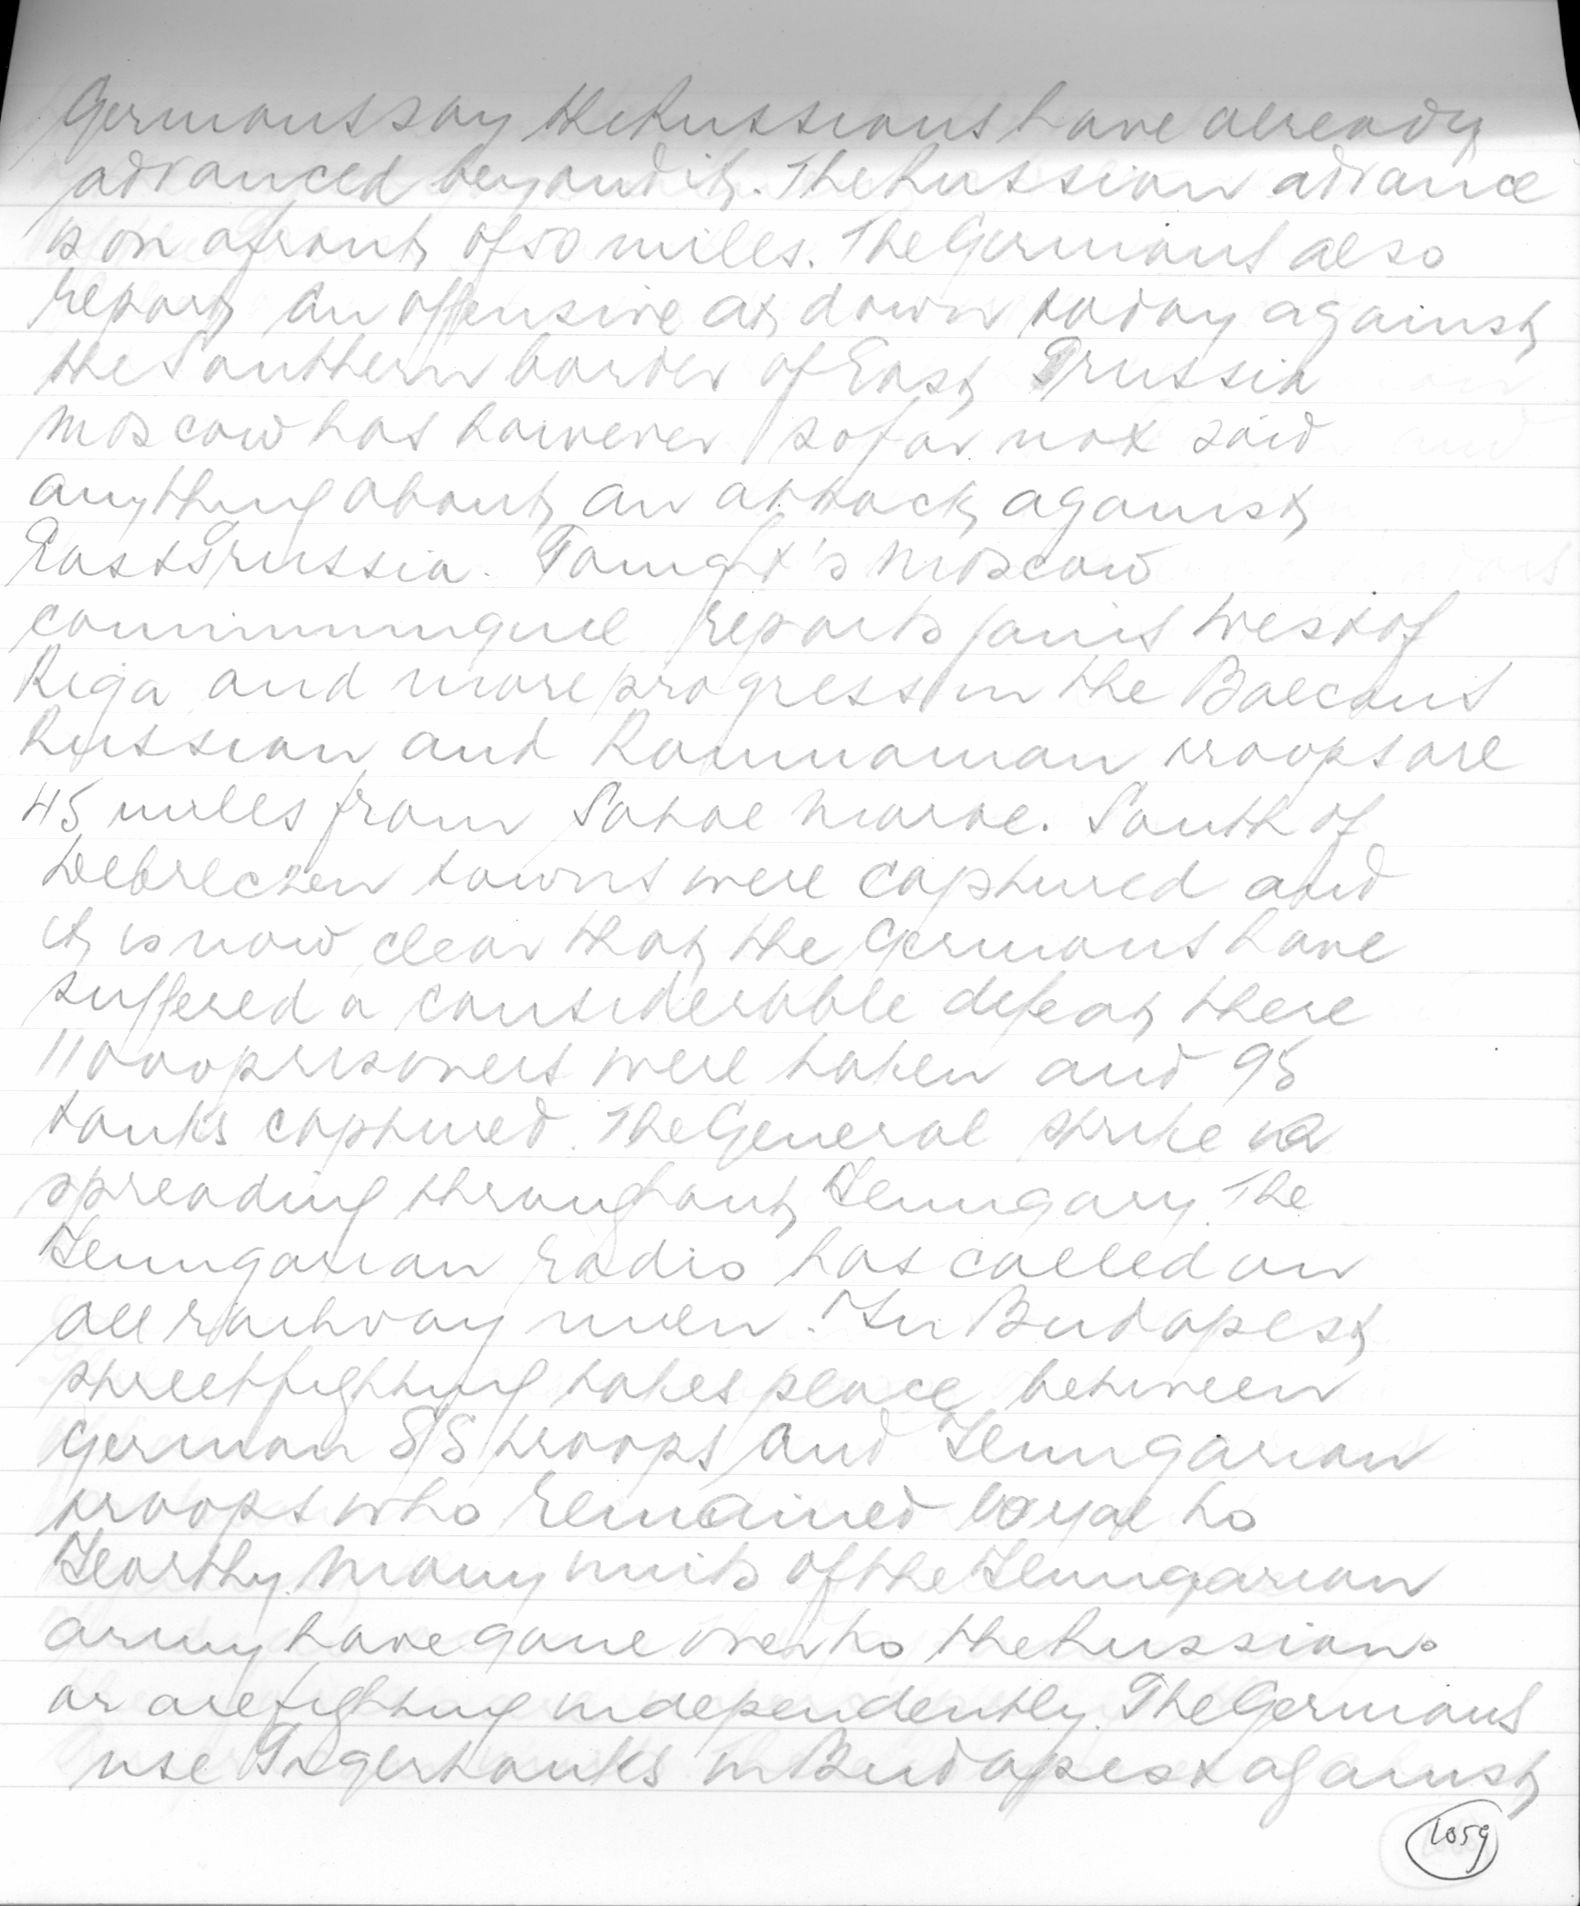 Germans say the Russians have already
advanced beyond it. The Russian advance
is on a front of 50 miles. The Germans also
report an offensive at dawn today against
the Southern border of East Prussia
Moscow has however so far not said
anything about an attack against
East Prussia. Tonight's Moscow
communique reports gains west of
Riga and more progress in the Balcans
Russian and Roumanian troops are
45 miles from Satoe Marae. South of
Debreczen towns were captured and
it is now clear that the Germans have
suffered a considerable defeat there
11000 prisoners were taken and 95
tanks captured. The General strike is
spreading throughout Hungary. The
Hungarian radio has called on
all railway men. In Budapest
streetfighting takes place between
German SS troops and Hungarian
troops who remained loyal to
Horthy. Many units of the Hungarian
army have gone over to the Russians
or are fighting independently. The Germans
use Tigertanks in Budapest against
1059